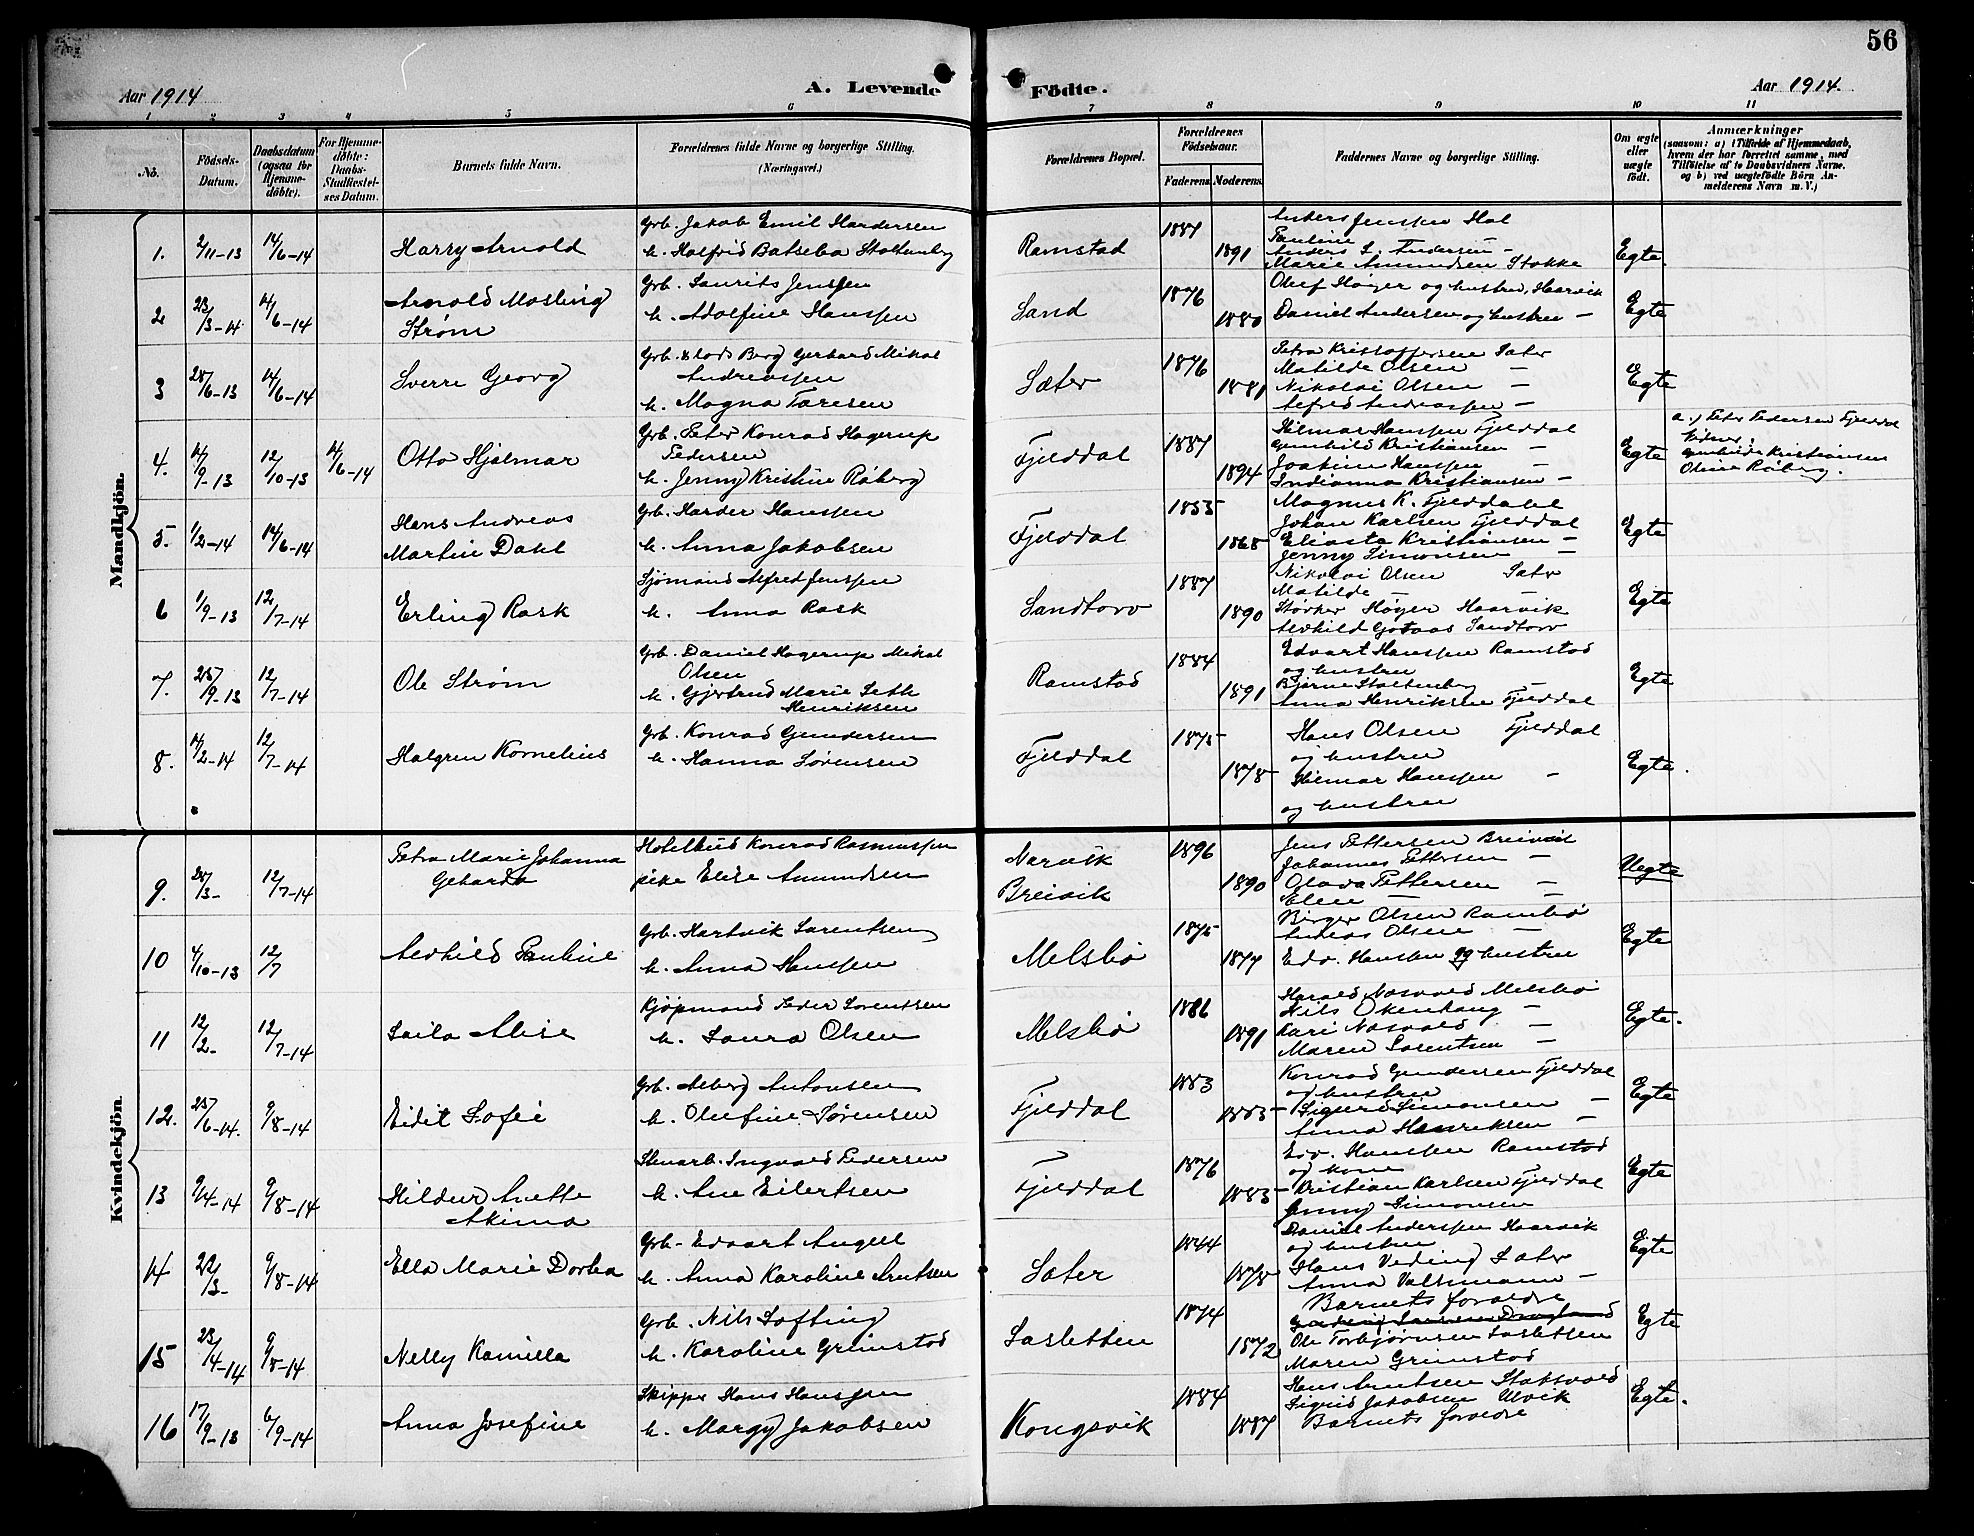 56
Aar 1914
A. Levende Födte.
Aar 1914.
1 2 3 4 5 6 7 8 9 10 11
No.
Födsels-Datum.
Daabsdatum (ogsaa for Hjemme-döbte).
For Hjemme-döbte: Daabs-Stadfæstel-ses Datum.
Barnets fulde Navn.
Forældrenes fulde Navne og borgerlige Stilling. (Næringsvei.)
Forældrenes Bopæl.
Forældrenes Födselsaar.
Faderens. Moderens.
Faddernes Navne og borgerlige Stilling.
Om ægte eller uægte födt.
Anmærkninger
(saasom: a) i Tilfælde af Hjemmedaab,
hvem der har forrettet samme, med
Tilföielse af to Daabsvidners Navne.
og b) ved uægtefödte Börn An-
melderens Navn m. V.)
Mandkjön.
1. 2/11-13 14/6-14 Harry Arnold
Grb. Jakob Emil Hardersen
h. Halfrid Batseba Stoltenberg
Ramstad 1887 1891
Anders Jenssen Hol
Pauline —
Anders L. Andersen —
Marie Amundsen Stokke
Egte.
2 23/3-14 14/6-14 Arnold Mosling
Strøm
Grb. Laurits Jenssen
h. Adolfine Hanssen
Sand 1876 1880
Oluf Høyer og hustru, Haarvik
Daniel Andersen og hustru —
Egte
3 25/6-13 14/6-14 Sverre Georg
Grb. Berg Gerhard Mikal
Andreassen
h. Magna Taresen
Sæter 1876 1881
Petra Kristoffersen Sæter
Matilde Olsen —
Nikolai Olsen —
Alfred Andreassen —
Egte
4. 14/9-13 12/10-13 14/6-14 Otto Hjalmar
Grb. Peter Konrad Hagerup
Pedersen
h. Jenny Kristine Røberg
Fjelddal 1887 1894
Hilmar Hanssen Fjelddal
Gunhild Kristiansen —
Joakim Hanssen —
Indianna Kristiansen —
Egte
a.) Peter Pedersen Fjelddal
Vidner:
Gunhilde Kristiansen
Oline Røberg.
5. 1/2-14 14/6-14 Hans Andreas
Martin Dahl
Grb. Harder Hanssen
h. Anna Jakobsen
Fjelddal 1855 1868
Magnus K. Fjelddahl
Johan Karlsen Fjelddal
Eliaste Kristiansen —
Jenny Simonsen —
Egte
6 1/9-13 12/7-14 Erling Rask
Sjømand Alfred Jenssen
h. Anna Rask
Sandtorv 1887 1890
Nikolai Olsen Sæter
Matilde — —
Størker Høyer Haarvik
Alvhild Gotaas Sandtorv
Egte
7. 25/9-13 12/7-14 Ole Strøm
Grb. Daniel Hagerup Mikal
Olsen
h. Gjertrud Marie Seth
Henriksen
Ramstad 1884 1891
Edvart Hanssen Ramstad
og hustru
Bjarne Stoltenberg —
Anna Henriksen Fjelddal
Egte
8. 14/2-14 12/7-14 Halgren Kornelius
Grb. Konrad Gundersen
h. Hanna Sørensen
Fjelddal 1875 1878
Hans Olsen Fjelddal
og hustru
Hilmar Hanssen —
og hustru
Egte.
Kvindekjön.
9. 28/3- 12/7-14 Petra Marie Johanna
Geharda
Hotelbud Konrad Rasmussen
pike Elise Amundsen
Narvik
Breivik
1896 1890
Jens Pettersen Breivik
Johannes Pettersen —
Olava Pettersen —
Elen — —
Uegte
10 4/10-13 12/7 Alvhild Pauline
Grb. Hartvik Lorentsen
h. Anna Hanssen
Melsbø 1875 1877
Birger Olsen Rambø
Andeas Olsen —
Edv. Hanssen og hustru
Egte
11 12/2- 12/7-14 Laila Alise
Kjøpmand Peder Lorentsen
h. Laura Olsen
Melsbø 1886 1891
Harald Nasvold Melsbø
Nils Okenhaug —
Kari Nasvold —
Maren Lorentsen —
Egte.
12. 25/6-14. 9/8-14 Eidit Sofie
Grb. Alberg Antonsen
h. Olufine Sørensen
Fjelddal 1883 1885
Konrad Gundersen Fjelddal
og hustru
Sigurd Simonsen —
Anna Henriksen —
Egte
13 9/4-14 9/8-14 Hildur Anette
Akima
Stenarb. Ingvald Pedersen
h. Ane Eilertsen
Fjelddal 1876 1883
Edv. Hanssen Ramstad
og kone
Kristian Karlsen Fjelddal
Jenny Simonsen
Egte
14 22/3- 9/8-14 Ella Marie Dorthea
Grb. Edvart Angell
h. Anna Karoline Arntsen
Sæter 1844 1878
Daniel Anderssen Haarvik
og hustru
Hans Veding Sæter
Anna Valsmann —
Egte
15 23/4-14 9/8-14 Nelly Kamilla
Grb. Nils Softing
h. Karoline Grimstad
Sasletten 1874 1872
Barnets forældre
Ole Torbjørnsen Sasletten
Maren Grimstad
Egte
16 17/9-13 6/9-14 Anna Josefine
Skipper Hans Hanssen
h. Margy Jakobsen
Kongsvik 1884 1887
Hans Arntsen Staksvold
Sigrid Jakobsen Ulvik
Barnets forældre
Egte.